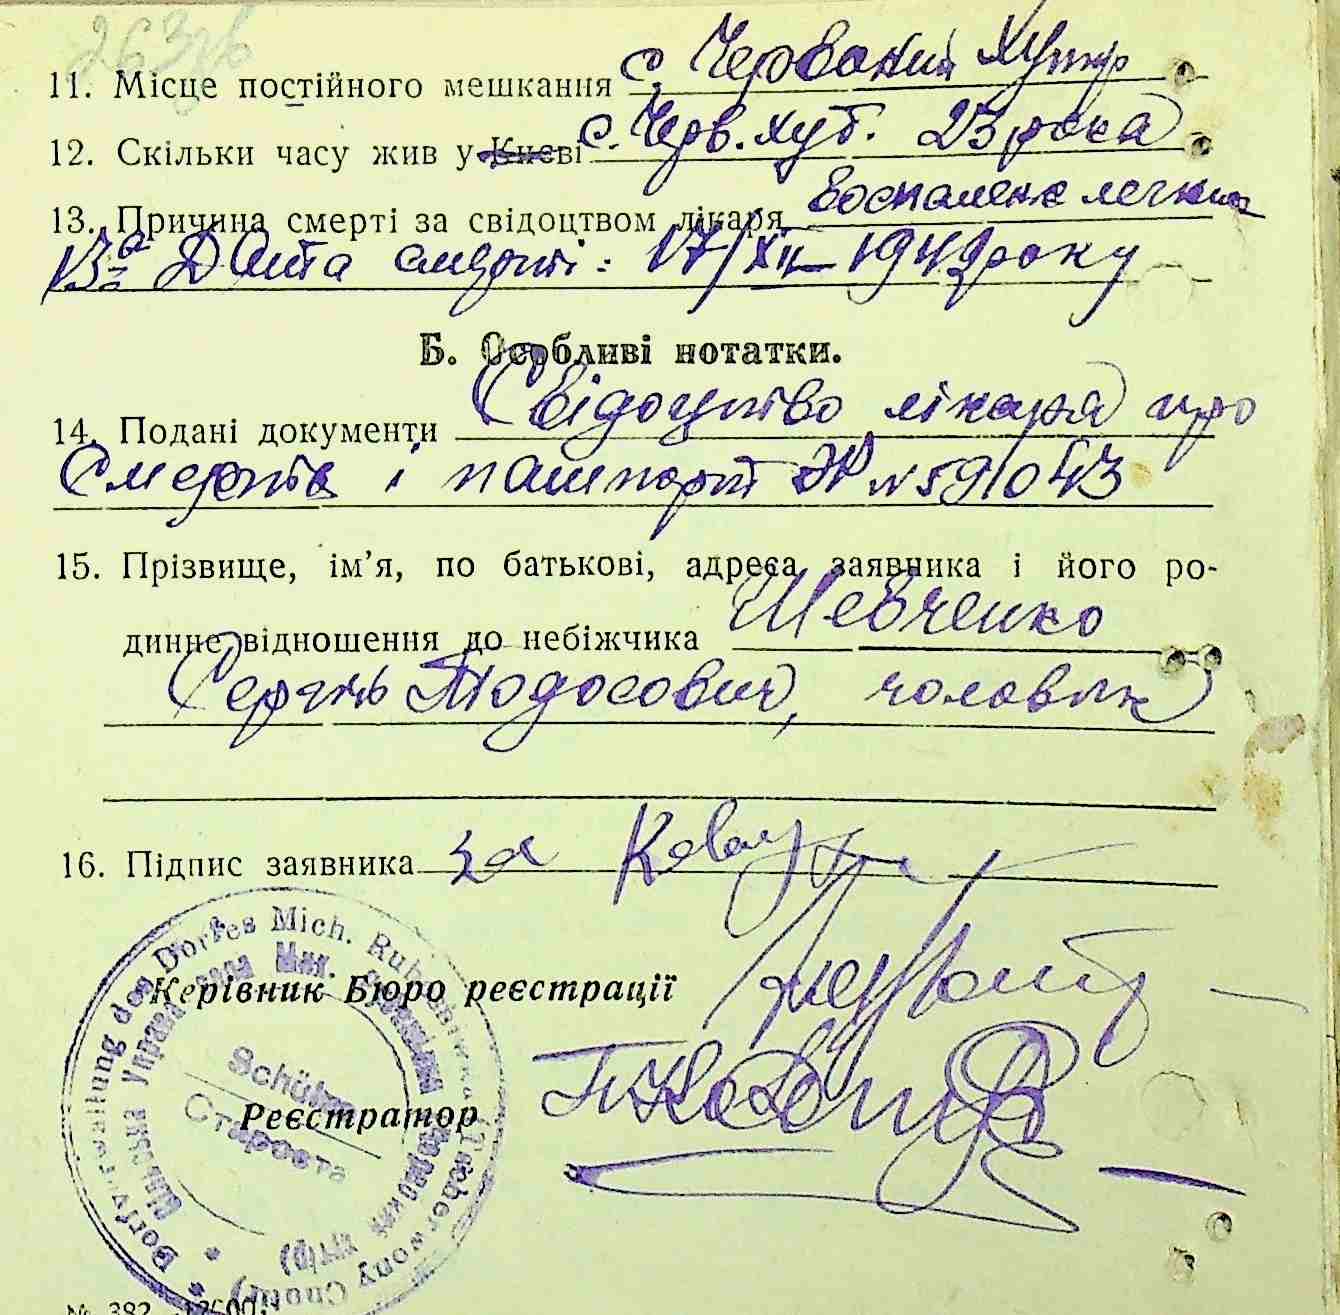 263зв
11. Місце постійного мешкання с. Червоний Хутір
12. Скільки часу жив у Києві с. Черв. хут. 23 рока
13. Причина смерті за свідоцтвом лікаря воспаленє легких
13а Дата смерті: 17/XII 1942 року
Б. Особливі нотатки.
14. Подані документи Свідоцтво лікаря про
смерть і пашпорт ЖР № 591043
15. Прізвище, ім’я, по батькові, адреса заявника і його ро-
динне відношення до небіжчика Шевченко
Сергій Тодосович, чоловік
16. Підпис заявника за
Керівник Бюро реєстрації
Реєстратор
Dorfverwaltung des Dorfes Mich. Rubeshiwka (Tscherwony Chutir)
Сільська Управа села Мих. Рубежівки (Червоний Хутір)
Schulze
Староста
№ 382